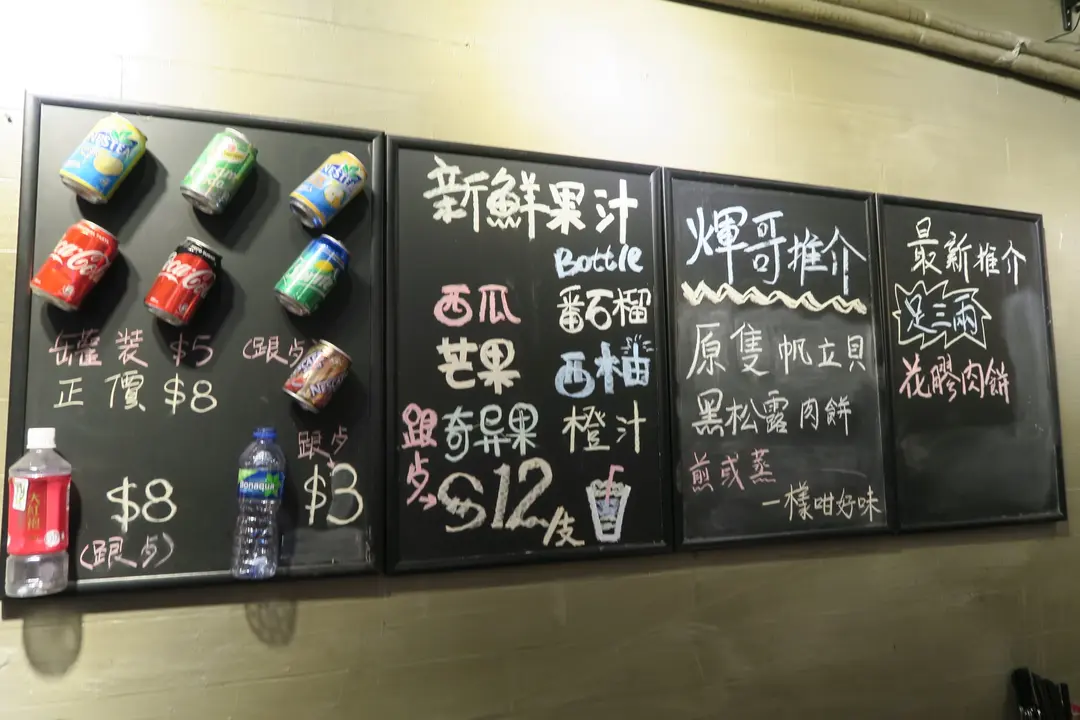 NESTEA
NESTEA
Coca-Cola
Coca-Cola
罐裝 $5 (跟歺)
正價 $8
NESCAFE
大紅袍
$8
(跟歺)
Bonaqua
跟歺
$3
新鮮果汁
Bottle
西瓜 番石榴
芒果 西柚
跟歺 奇異果 橙汁
$12/支
輝哥推介
原隻帆立貝
黑松露肉餅
煎或蒸
一樣咁好味
最新推介
足三兩
花膠肉餅